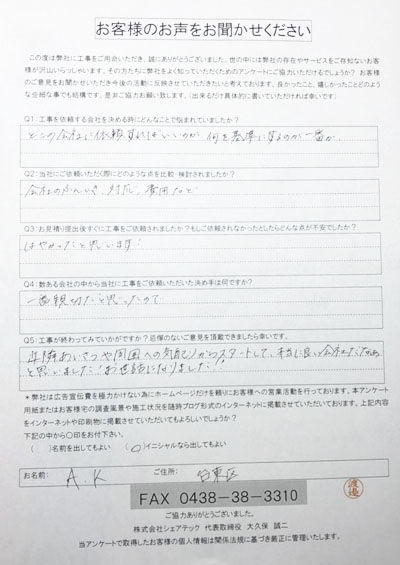 お客様のお声をお聞かせください
この度は弊社に工事をご用命いただき、誠にありがとうございました。世の中には弊社の存在やサービスをご存知ないお客
様が沢山いらっしゃいます。その方たちに弊社をよく知っていただくためのアンケートにご協力いただけるでしょうか？お客様
のご意見をお聞かせいただき今後の活動に反映させていただきたいと考えております。良かったこと、嬉しかったことどのよう
な些細な事でも結構です。是非ご協力お願い致します。（出来るだけ具体的に書いていただければ幸いです）
Q1：工事を依頼する会社を決める時にどんなことで悩まれていました。
どこの会社に依頼すればいいのか 何を基準にするのが一番か
Q2：当社にご依頼いただく際にどのような点を比較・検討されましたか？
会社のふんいき、対応、費用など
Q3：お見積り提出後すぐに工事をご依頼されましたか？もしご依頼されなかったとしたらどんな点が不安でしたか？
はやかったと思います！
Q4：数ある会社の中から当社に工事をご依頼いただいた決め手は何ですか？
一番親切だと思ったので
Q5：工事が終わってみていかがですか？忌憚のないご意見を頂戴できましたら幸いです。
近隣あいさつや周囲への気配りからスタートして、本当に良い会社だなぁ
と思いました！お世話になりました！
＊弊社は広告宣伝費を極力かけない為にホームページだけを頼りにお客様への営業活動を行っております。本アンケート
用紙またはお客様宅の調査風景や施工状況を随時ブログ形式のインターネットに掲載させていただいております。上記内容
をインターネットや印刷物に掲載させていただいてもよろしいでしょうか？
下記の中から〇印をお付下さい。
（　）名前を出してもよい （〇）イニシャルなら出してもよい
お名前： A.K ご住所： 台東区
FAX 0438-38-3310
渡邉
ご協力ありがとうございました。
株式会社シェアテック 代表取締役 大久保 誠二
当アンケートで取得したお客様の個人情報は関係法規に基づき厳正に管理いたします。